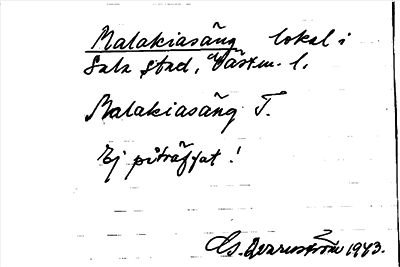 Malakiasäng lokal i
Sala stad, Västm. l.
Malakiasäng T.
Ej påträffat!
Gs. Qvarnström 1943.